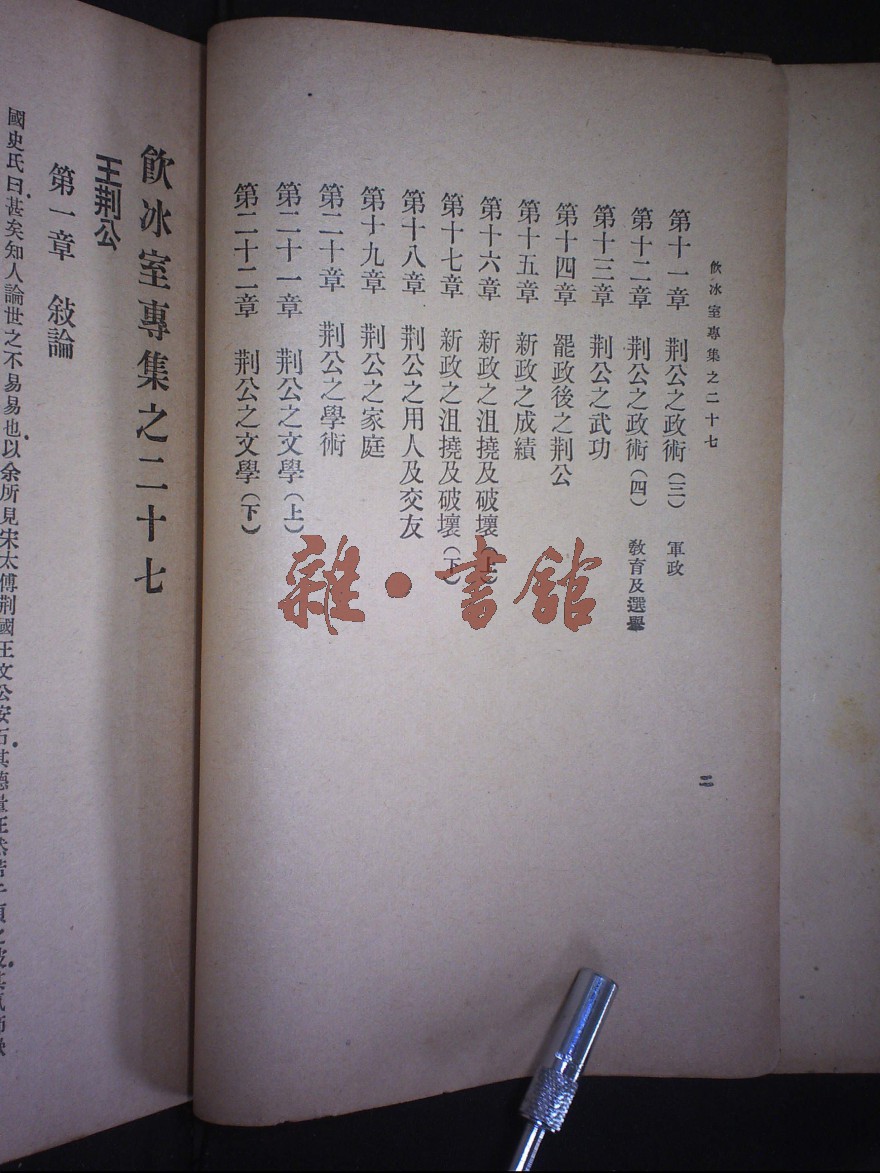 飲冰室專集之二十七
第十一章　荆公之政術（三）　軍政
第十二章　荆公之政術（四）　教育及選舉
第十三章　荆公之武功
第十四章　罷政後之荆公
第十五章　新政之成績
第十六章　新政之沮撓及破壞（上）
第十七章　新政之沮撓及破壞（下）
第十八章　荆公之用人及交友
第十九章　荆公之家庭
第二十章　荆公之學術
第二十一章　荆公之文學（上）
第二十二章　荆公之文學（下）
二
雜・書館
飲冰室專集之二十七
王荆公
第一章　敍論
國史氏曰甚矣知人論世之不易易也以余所見宋太傅荆國王文公安石其德量汪